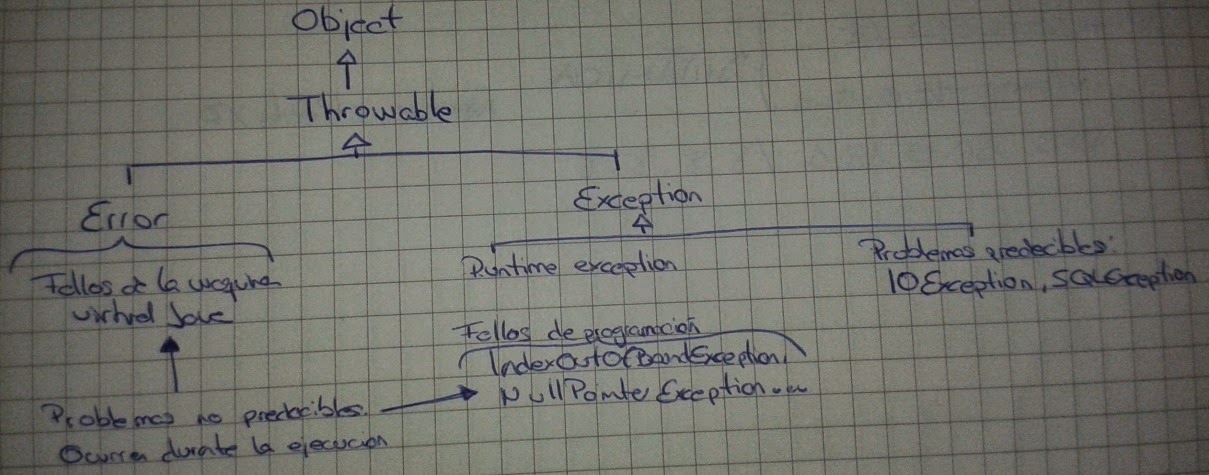 Object
Throwable
Error
Exception
Fallos de la maquina
virtual Java
Runtime exception
Problemas predecibles:
IOException, SQLException
Fallos de programación
IndexOutOfBoundException,
NullPointerException...
Problemas no predecibles.
Ocurren durante la ejecución